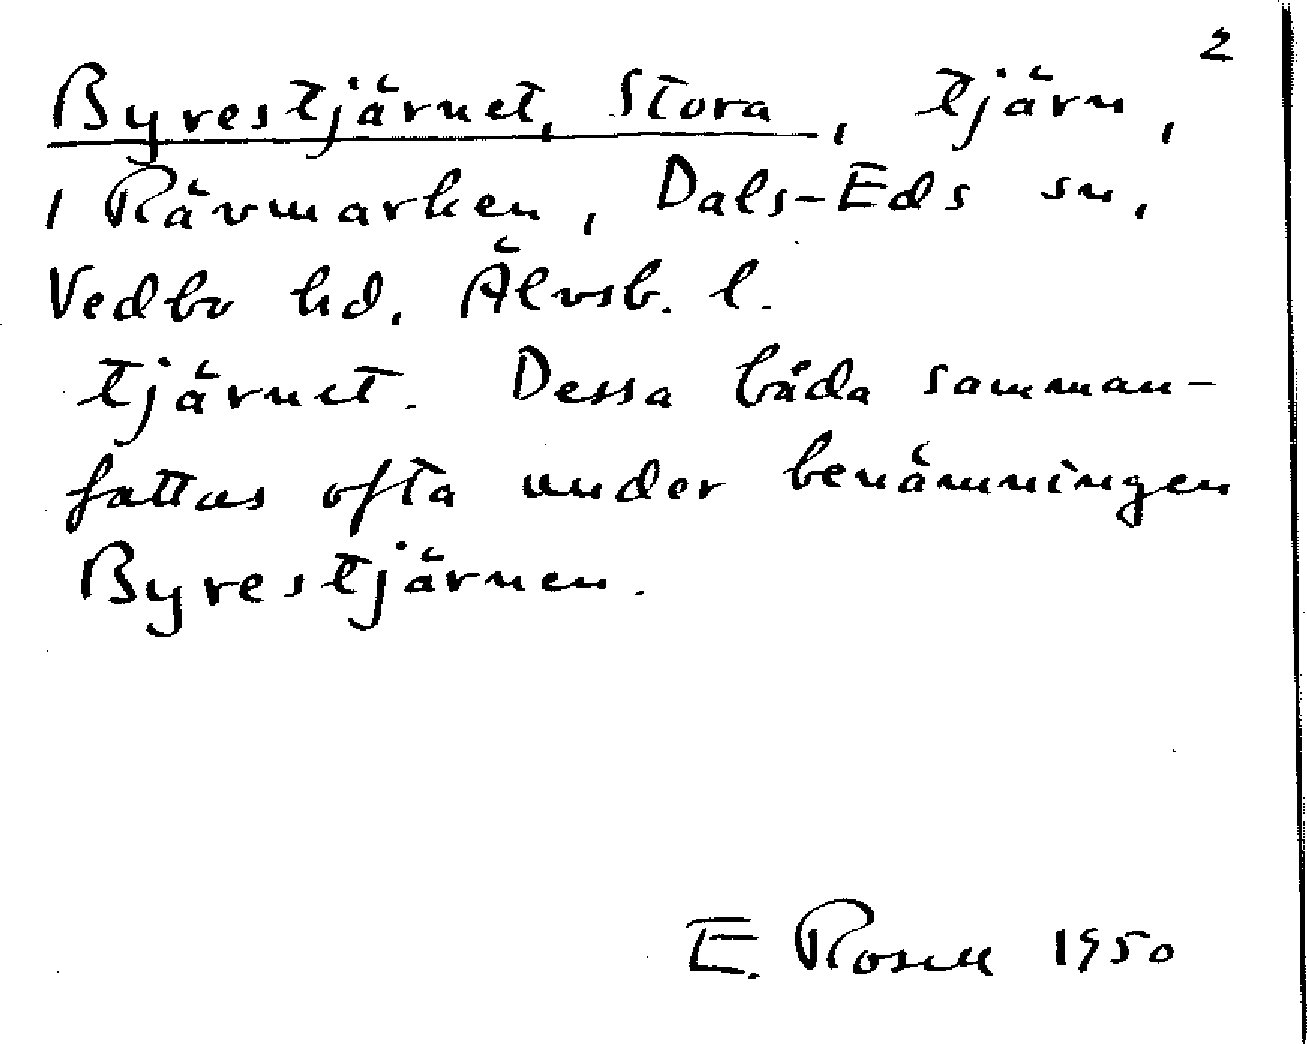 2
Byrestjärnet, Stora, tjärn,
i Rävmarken, Dals-Eds sn,
Vedbo hd, Älvsb. l.
tjärnet. Dessa båda samman-
fattas ofta under benämningen
Byrestjärnen.
E. Rosell 1950